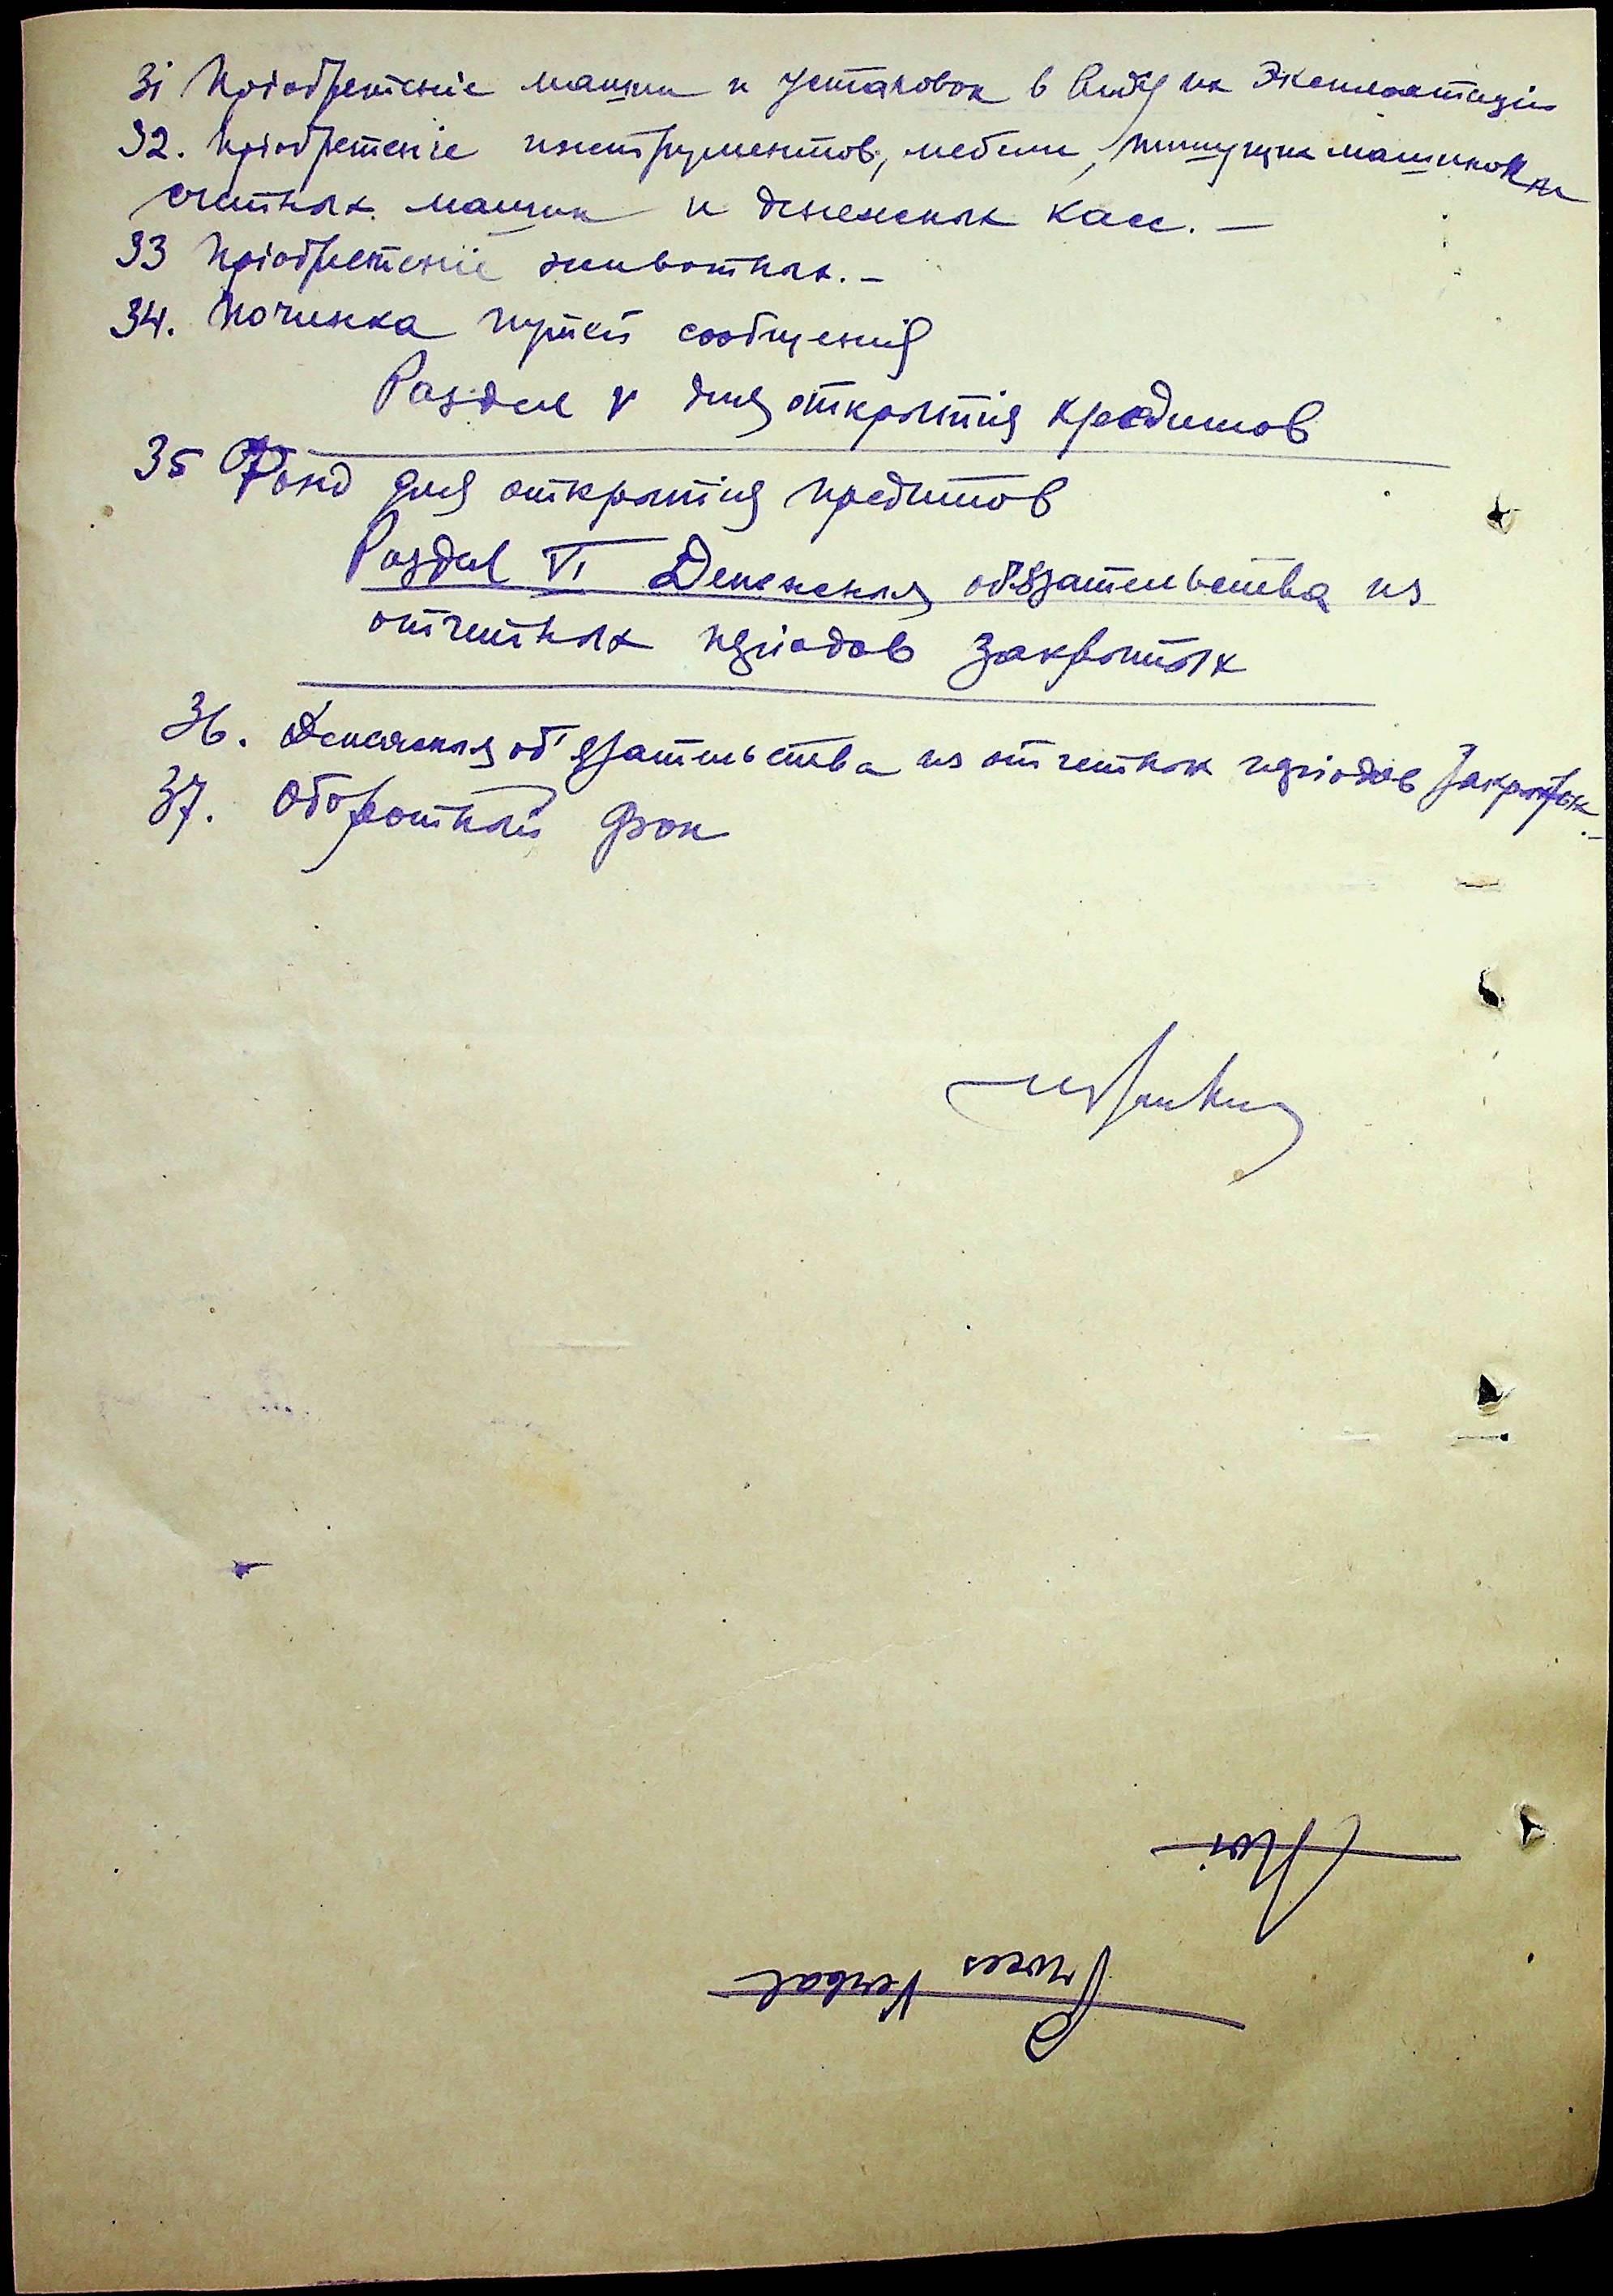 31 Пріобретеніе машин и установок в виду их Эксплоатаціи
32. Пріобретеніе инструментов, мебели, пишущих машинок и
счетных машин и денежных касс. —
33 Пріобретеніе животных. —
34. Починка путей сообщенія
Раздел V для открытія кредитов
35 Фонд для открытія кредитов
Раздел VI Денежныя обязательства из
отчетных періодов закрытых
36. Денежныя об'язательства из отчетных періодов закрытых. —
37. Оборотный фон
Proces Verbal